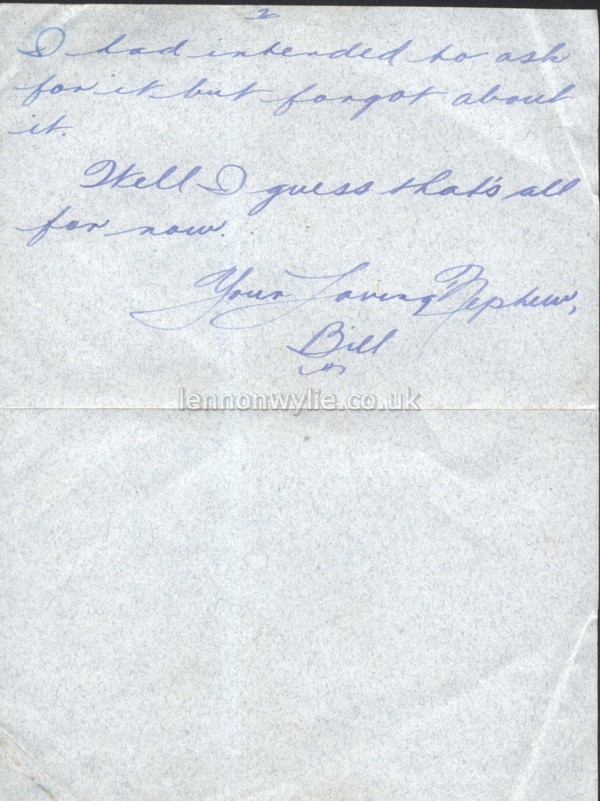 2
I had intended to ask
for it but forgot about
it.
Well I guess that's all
for now.
Your Loving Nephew,
Bill
lennonwylie.co.uk